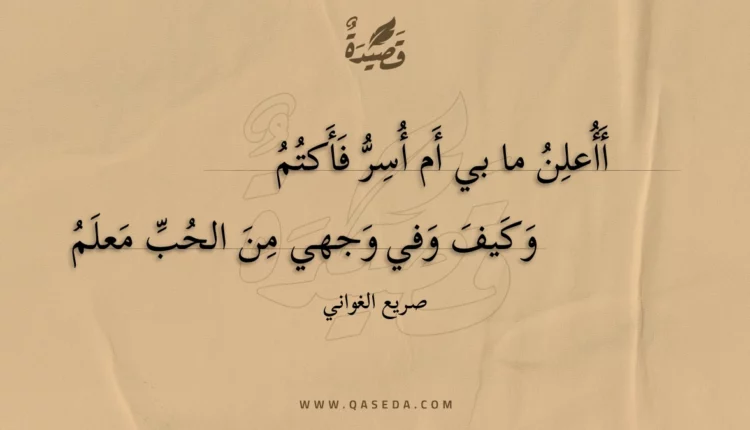 قَصِيدَةٌ
أَأُعلِنُ ما بي أَم أُسِرُّ فَأَكتُمُ
وَكَيفَ وَفي وَجهي مِنَ الحُبِّ مَعلَمُ
صريع الغواني
WWW.QASEDA.COM